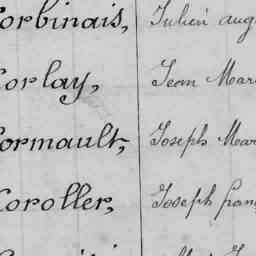 Corbinais, Julien aug
Corlay, Jean Mar
Cormault, Joseph Mar
Coroller, Joseph fran